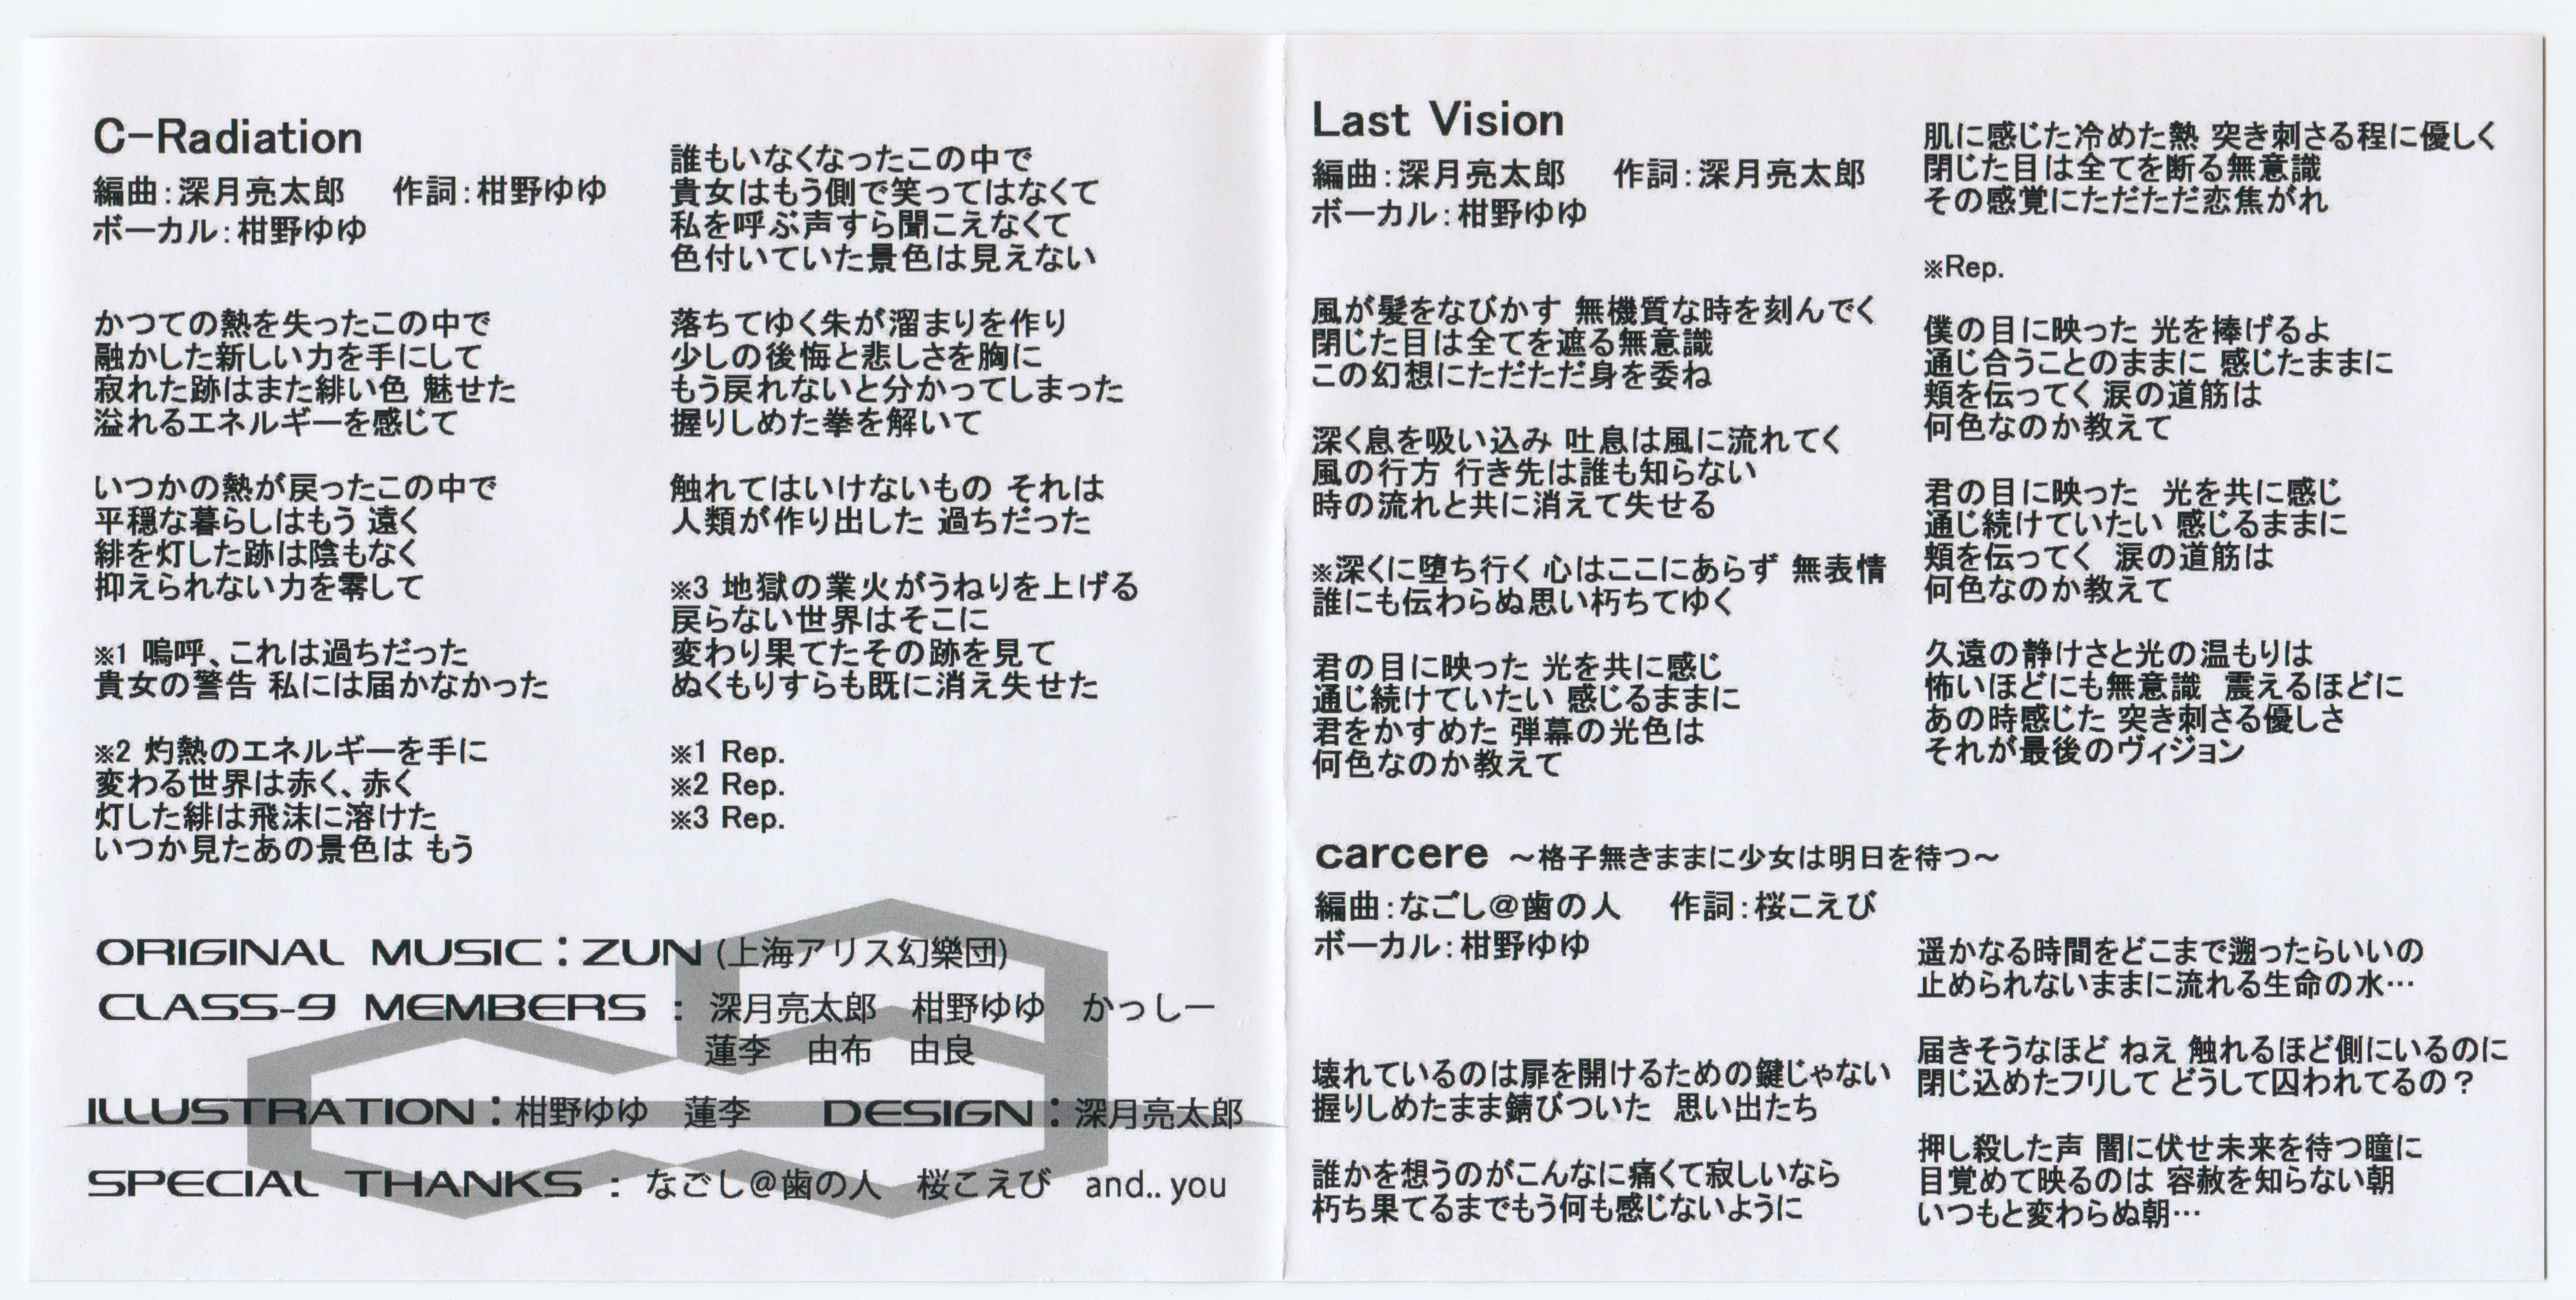 C-Radiation
編曲：深月亮太郎　作詞：柑野ゆゆ
ボーカル：柑野ゆゆ
かつての熱を失ったこの中で
融かした新しい力を手にして
寂れた跡はまた緋い色 魅せた
溢れるエネルギーを感じて
いつかの熱が戻ったこの中で
平穏な暮らしはもう 遠く
緋を灯した跡は陰もなく
抑えられない力を零して
※1 嗚呼、これは過ちだった
貴女の警告 私には届かなかった
※2 灼熱のエネルギーを手に
変わる世界は赤く、赤く
灯した緋は飛沫に溶けた
いつか見たあの景色は もう
誰もいなくなったこの中で
貴女はもう側で笑ってはなくて
私を呼ぶ声すら聞こえなくて
色付いていた景色は見えない
落ちてゆく朱が溜まりを作り
少しの後悔と悲しさを胸に
もう戻れないと分かってしまった
握りしめた拳を解いて
触れてはいけないもの それは
人類が作り出した 過ちだった
※3 地獄の業火がうねりを上げる
戻らない世界はそこに
変わり果てたその跡を見て
ぬくもりすらも既に消え失せた
※1 Rep.
※2 Rep.
※3 Rep.
ORIGINAL MUSIC：ZUN (上海アリス幻樂団)
CLASS-9 MEMBERS：深月亮太郎　柑野ゆゆ　かっしー
蓮李　由布　由良
ILLUSTRATION：柑野ゆゆ　蓮李　DESIGN：深月亮太郎
SPECIAL THANKS：なごし@歯の人　桜こえび　and.. you
Last Vision
編曲：深月亮太郎　作詞：深月亮太郎
ボーカル：柑野ゆゆ
風が髪をなびかす 無機質な時を刻んでく
閉じた目は全てを遮る無意識
この幻想にただただ身を委ね
深く息を吸い込み 吐息は風に流れてく
風の行方 行き先は誰も知らない
時の流れと共に消えて失せる
※深くに堕ち行く 心はここにあらず 無表情
誰にも伝わらぬ思い朽ちてゆく
君の目に映った 光を共に感じ
通じ続けていたい 感じるままに
君をかすめた 弾幕の光色は
何色なのか教えて
肌に感じた冷めた熱 突き刺さる程に優しく
閉じた目は全てを断る無意識
その感覚にただただ恋焦がれ
※Rep.
僕の目に映った 光を捧げるよ
通じ合うことのままに 感じたままに
頬を伝ってく 涙の道筋は
何色なのか教えて
君の目に映った　光を共に感じ
通じ続けていたい 感じるままに
頬を伝ってく　涙の道筋は
何色なのか教えて
久遠の静けさと光の温もりは
怖いほどにも無意識　震えるほどに
あの時感じた 突き刺さる優しさ
それが最後のヴィジョン
carcere ～格子無きままに少女は明日を待つ～
編曲：なごし@歯の人　作詞：桜こえび
ボーカル：柑野ゆゆ
壊れているのは扉を開けるための鍵じゃない
握りしめたまま錆びついた　思い出たち
誰かを想うのがこんなに痛くて寂しいなら
朽ち果てるまでもう何も感じないように
遥かなる時間をどこまで遡ったらいいの
止められないままに流れる生命の水…
届きそうなほど ねえ 触れるほど側にいるのに
閉じ込めたフリして どうして囚われてるの？
押し殺した声 闇に伏せ未来を待つ瞳に
目覚めて映るのは 容赦を知らない朝
いつもと変わらぬ朝…